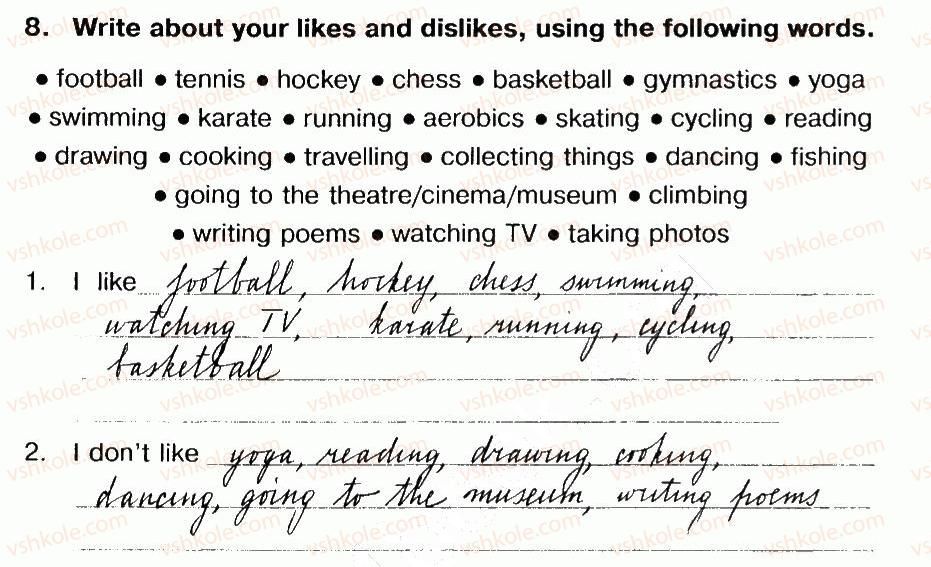 8. Write about your likes and dislikes, using the following words.
• football • tennis • hockey • chess • basketball • gymnastics • yoga
• swimming • karate • running • aerobics • skating • cycling • reading
• drawing • cooking • travelling • collecting things • dancing • fishing
• going to the theatre/cinema/museum • climbing
• writing poems • watching TV • taking photos
1. I like football, hockey, chess, swimming,
watching TV, karate, running, cycling,
basketball
2. I don't like yoga, reading, drawing, cooking,
dancing, going to the museum, writing poems
vshkole.com